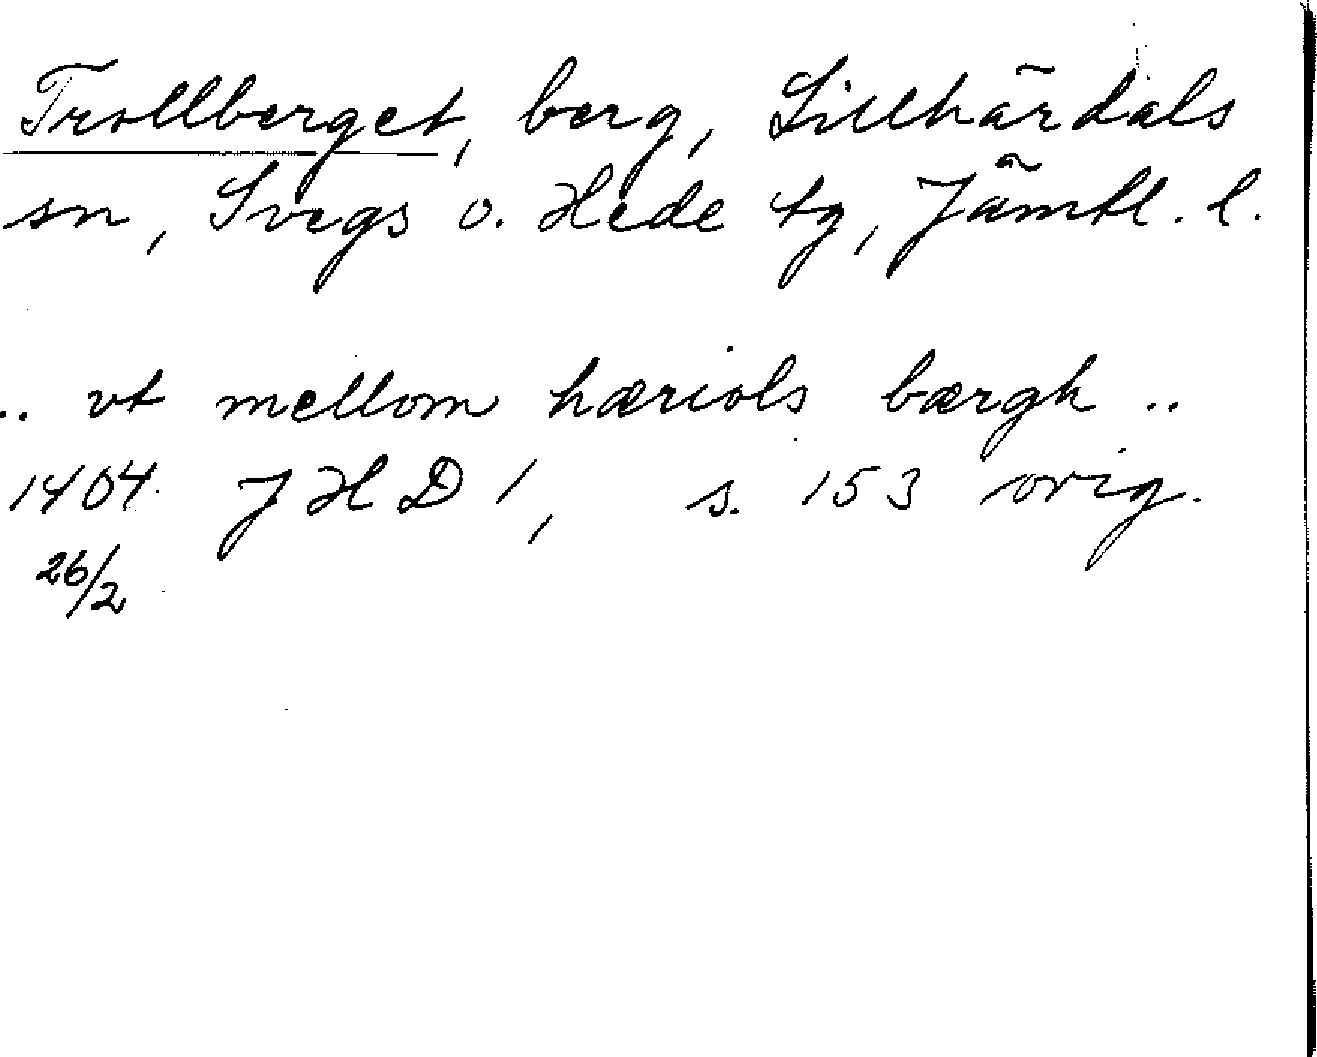 Trollberget, berg, Lillhärdals
sn, Svegs o. Hede tg, Jämtl. l.
.. vt mellom hæriols bærgh ..
1404 JHD 1, s. 153 orig.
26/2